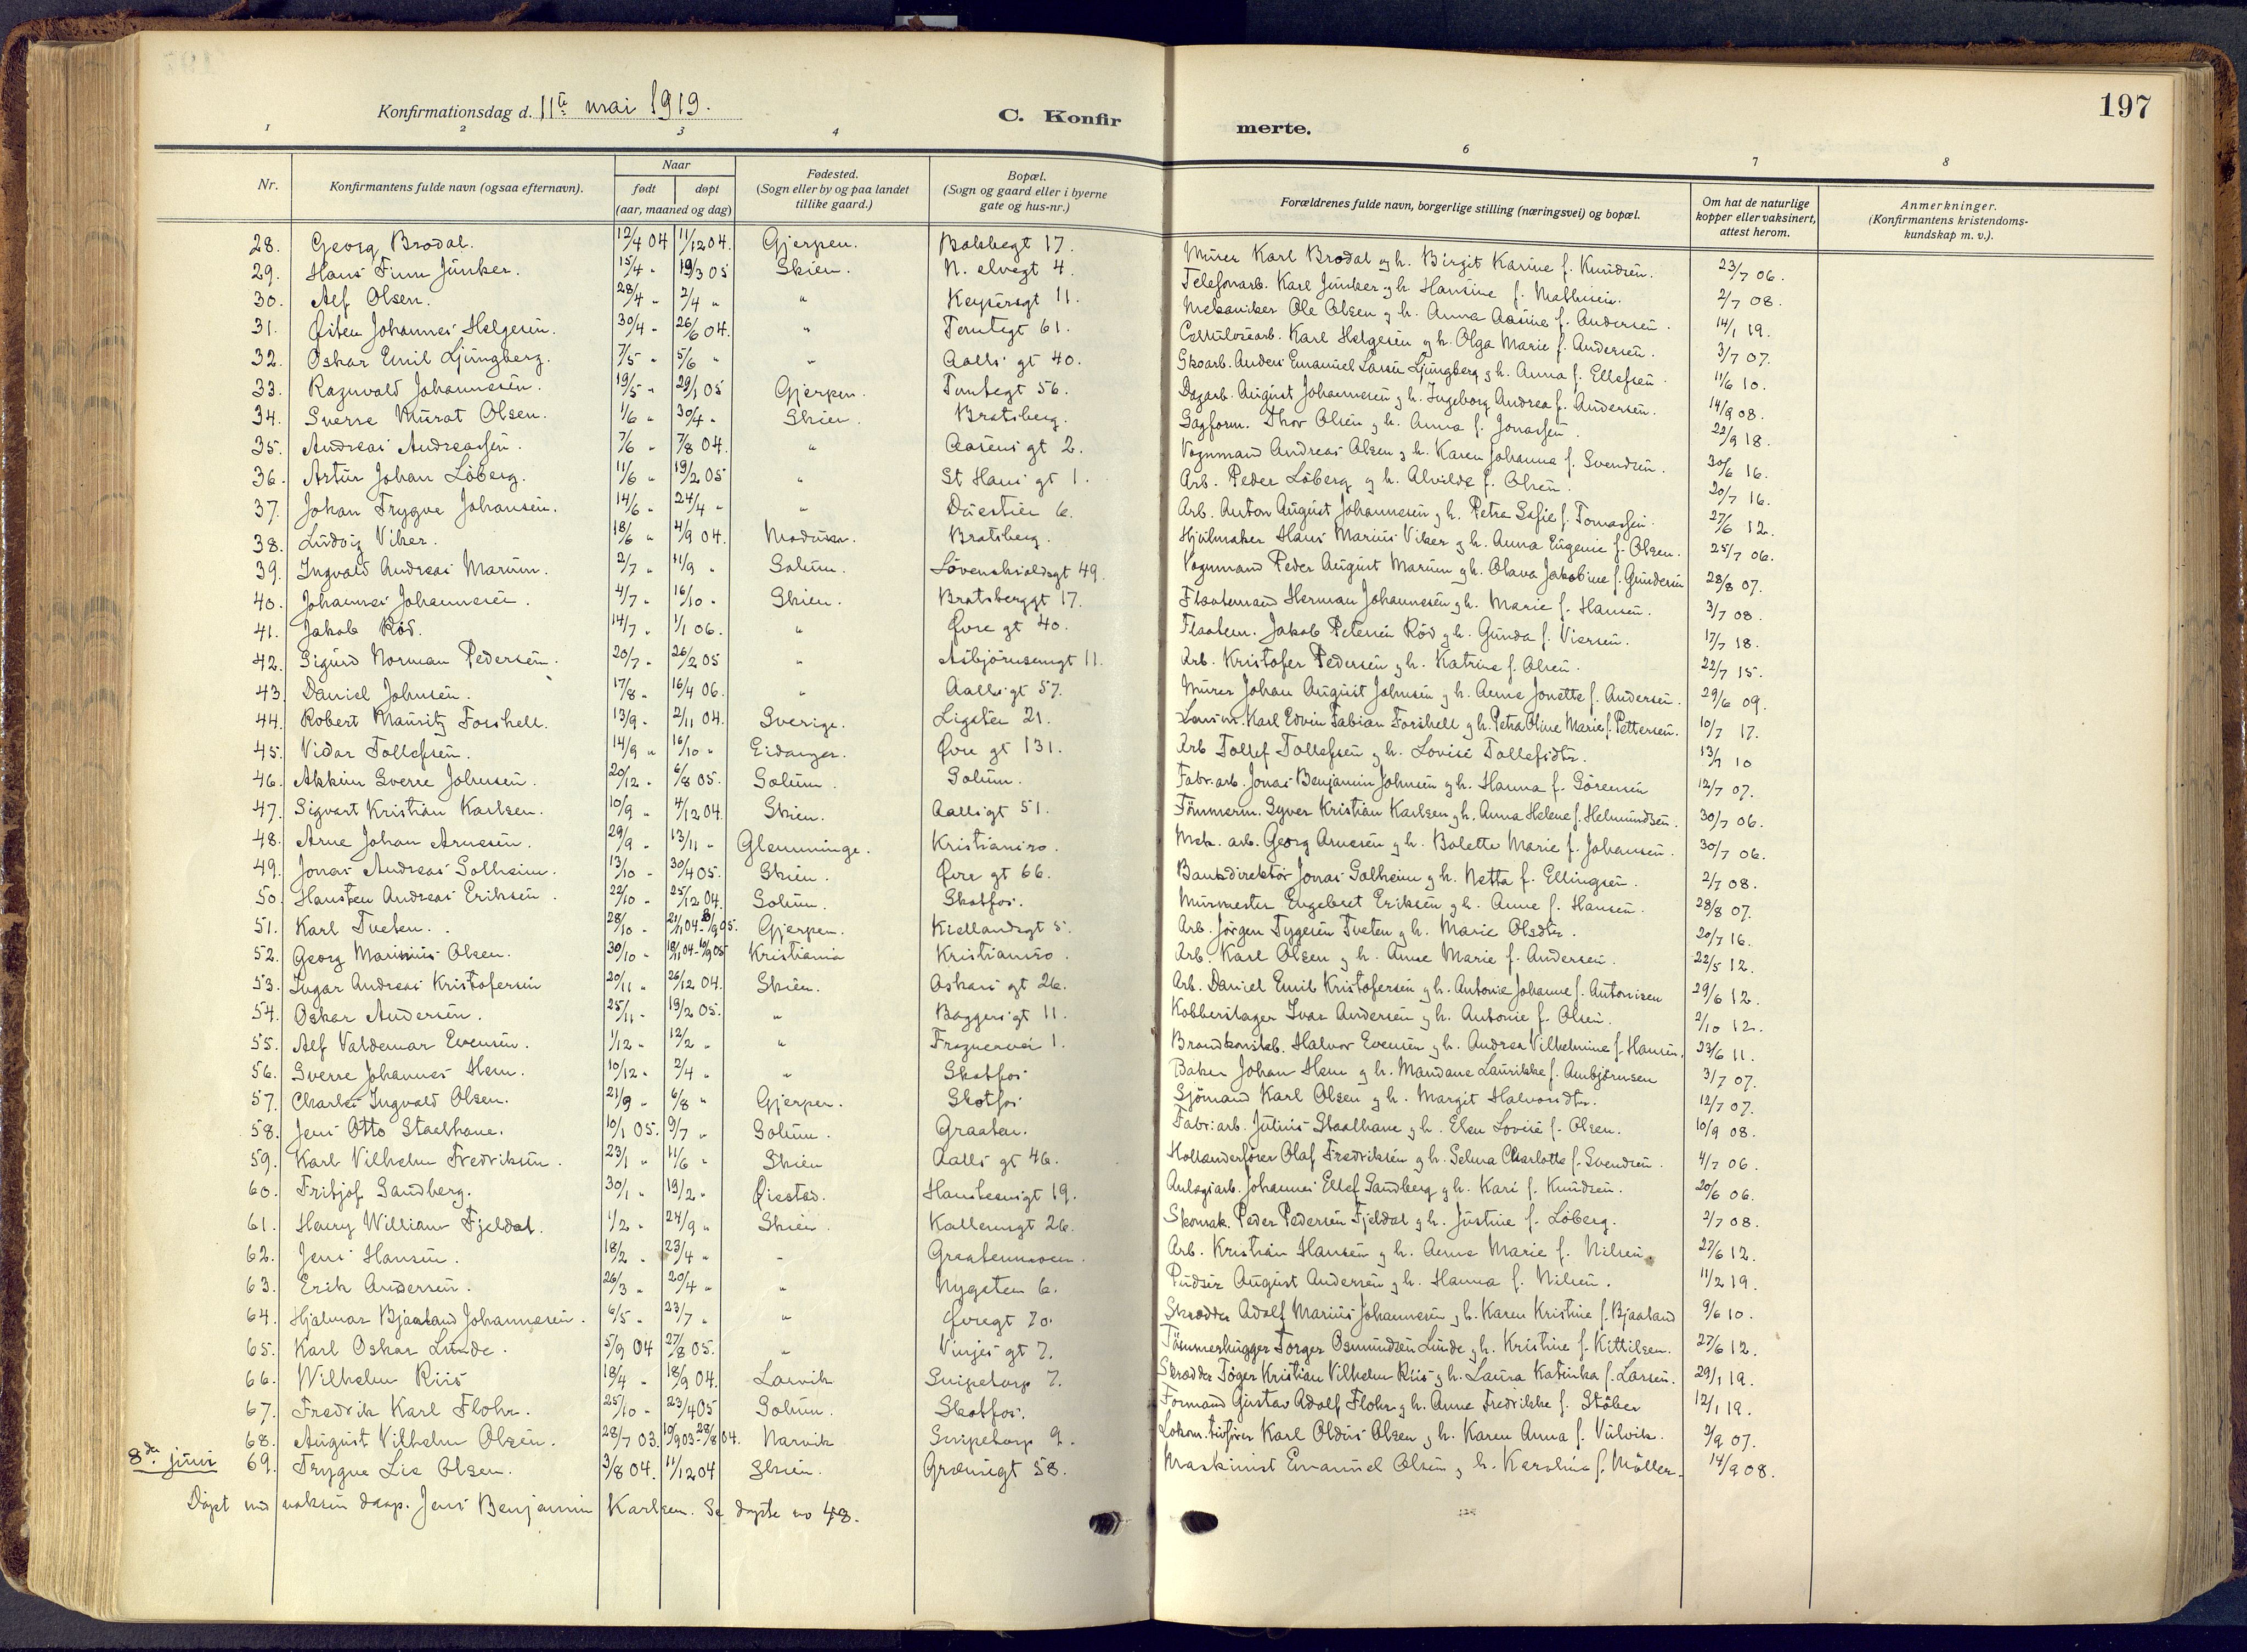 197
Konfirmationsdag d. 11te mai 1919.
C. Konfirmerte.
1 2 3 4 6 7 8
Nr. | Konfirmantens fulde navn (ogsaa efternavn). | Naar født døpt (aar, maaned og dag) | Fødested. (Sogn eller by og paa landet tillike gaard.) | Bopæl. (Sogn og gaard eller i byerne gate og hus-nr.) | Forældrenes fulde navn, borgerlige stilling (næringsvei) og bopæl. | Om hat de naturlige kopper eller vaksinert, attest herom. | Anmerkninger. (Konfirmantens kristendomskundskap m. v.).
28. Georg Brodal. 12/4 04 11/12 04. Gjerpen. Bolsbegt 17. Murer Karl Brodal og h. Birgit Karine f. Knudsen. 23/7 06.
29. Hans Finn Junker. 15/4 " 19/3 05 Skien. N. elvegt 4. Telefonarb. Karl Junker og h. Hansine f. Mathisen. 2/7 08.
30. Alf Olsen. 28/4 " 2/4 " " Keysersgt 11. Mekaniker Ole Olsen og h. Anna Aasine f. Andersen. 14/1 19.
31. Østen Johannes Helgesen. 30/4 " 26/6 04. " Tomtegt 61. Cellulosearb. Karl Helgesen og h. Olga Marie f. Andersen. 3/7 07.
32. Oskar Emil Ljungberg. 7/5 " 5/6 " " Aalls gt 40. Skoarb. Anders Emanuel Larsen Ljungberg og h. Anna f. Ellefsen. 11/6 10.
33. Ragnvald Johannesen. 19/5 " 29/1 05 Gjerpen. Tomtegt 56. Dagarb. August Johannesen og h. Ingeborg Andrea f. Andersen. 14/9 08.
34. Sverre Murat Olsen. 1/6 " 30/4 " Skien. Bratsberg. Sagform. Thor Olsen og h. Anna f. Jonassen. 22/9 18.
35. Andreas Andreassen. 7/6 " 7/8 04. " Aasens gt 2. Vognmand Andreas Olsen og h. Karen Johanna f. Svendsen. 30/6 16.
36. Artur Johan Løberg. 11/6 " 19/2 05 " St Hans gt 1. Arb. Peder Løberg og h. Alvilde f. Olsen. 20/7 16.
37. Johan Trygve Johansen. 14/6 " 24/4 " " Duestien 6. Arb. Anton August Johannesen og h. Petra Sofie f. Tomassen. 27/6 12.
38. Ludvig Viker. 18/6 " 4/9 04. Modum. Bratsberg. Hjulmaker Hans Marius Viker og h. Anna Eugenie f. Olsen. 25/7 06.
39. Ingvald Andreas Marum. 2/7 " 11/9 " Solum. Løvenskioldsgt 49. Vognmand Peder August Marum og h. Olava Jakobine f. Gundersen 28/8 07.
40. Johannes Johannesen. 4/7 " 16/10 " Skien. Bratsberggt 17. Flaatemand Herman Johannesen og h. Marie f. Hansen. 3/7 08.
41. Jakob Rød. 14/7 " 1/1 06. " Øvre gt 40. Flaatem. Jakob Petersen Rød og h. Gunda f. Viersen. 17/7 18.
42. Sigurd Norman Pedersen. 20/7 " 26/2 05 " Asbjørnsensgt 11. Arb. Kristofer Pedersen og h. Katrine f. Olsen. 22/7 15.
43. Daniel Johnsen. 17/8 " 16/4 06. " Aalls gt 57. Murer Johan August Johnsen og h. Anne Jonette f. Andersen. 29/6 09.
44. Robert Mauritz Forshell. 13/9 " 2/11 04. Sverige. Ligaten 21. Karl Edvin Fabian Forshell og h. Petra Oline Marie f. Pettersen. 10/7 17.
45. Vidar Tollefsen. 14/9 " 16/10 " Eidanger. Øvre gt 131. Arb Tollef Tollefsen og h. Lovise Tollefsdtr. 13/7 10
46. Akkim Sverre Johnsen. 20/12 " 6/8 05. Solum. Solum. Fabr.arb. Jonas Benjamin Johnsen og h. Hanna f. Sørensen 12/7 07.
47. Sigvart Kristian Karlsen. 10/9 " 4/12 04. Skien. Aalls gt 51. Tømmerm. Syver Kristian Karlsen og h. Anna Helene f. Helmundsen. 30/7 06.
48. Arne Johan Arnesen. 29/9 " 13/11 " Glemminge. Kristiansro. Mek. arb. Georg Arnesen og h. Bolette Marie f. Johansen. 30/7 06.
49. Jonas Andreas Solheim. 13/10 " 30/4 05. Skien. Øvre gt 66. Bankdirektør Jonas Solheim og h. Netta f. Ellingsen. 2/7 08.
50. Hansten Andreas Eriksen. 22/10 " 25/12 04. Solum. Skotfos. Murmester Engebret Eriksen og h. Anne f. Hansen. 28/8 07.
51. Karl Tveten. 28/10 " Gjerpen. Kiellandsgt 5. Arb. Jørgen Tygesen Tveten og h. Marie Olsdtr. 20/7 16.
52. Georg Marinius Olsen. 30/10 " 18/11 04-10/9 05 Kristiania Kristiansro. Arb. Karl Olsen og h. Anne Marie f. Andersen. 22/5 12.
53. Ingar Andreas Kristofersen 20/11 " 26/12 04. Skien. Oskars gt 26. Arb. Daniel Emil Kristofersen og h. Antonie Johanne f. Antonisen 29/6 12.
54. Oskar Andersen. 25/11 " 19/2 05. " Baggersgt 11. Kobberslager Ivar Andersen og h. Antonie f. Olsen. 2/10 12.
55. Alf Valdemar Evensen. 1/12 " 12/2 " " Frognervei 1. Brandkonstab. Halvor Evensen og h. Andrea Vilhelmine f. Hansen. 23/6 11.
56. Sverre Johannes Hem. 10/12 " 2/4 " " Skotfos Baker Johan Hem og h. Mandane Laurikke f. Ambjørnsen 3/7 07.
57. Charles Ingvald Olsen. 21/9 " 6/8 " Gjerpen. Skotfos Sjømand Karl Olsen og h. Margit Halvorsdtr. 12/7 07.
58. Jens Otto Staalhane. 10/1 05. 9/7 " Solum. Graaten. Fabr.arb. Julius Staalhane og h. Elen Lovise f. Olsen. 10/9 08.
59. Karl Vilhelm Fredriksen. 23/1 " 11/6 " Skien Aalls gt 46. Hollanderfører Olaf Fredriksen og h. Selma Charlotte f. Svendsen. 4/7 06.
60. Fritjof Sandberg. 30/1 " 19/2 " Øiestad. Hansteensgt 19. Anlægsarb. Johannes Ellef Sandberg og h. Kari f. Knudsen. 20/6 06.
61. Harry William Fjeldal. 1/2 " 24/9 " Skien. Kallernsgt 26. Skomak. Peder Pedersen Fjeldal og h. Justine f. Løberg. 2/7 08.
62. Jens Hansen. 18/2 " 23/4 " " Graatenmoen. Arb. Kristian Hansen og h. Anna Marie f. Nilsen. 27/6 12.
63. Erik Andersen. 26/3 " 20/4 " " Nygaten 6. Pudser August Andersen og h. Hanna f. Nilsen. 11/2 19.
64. Hjalmar Bjaaland Johannesen. 6/5 " 23/7 " " Øvregt 70. Skrædder Adolf Marius Johannesen og h. Karen Kristine f. Bjaaland 9/6 10.
65. Karl Oskar Lunde. 5/9 04 27/8 05. " Vinjes gt 7. Tømmerhugger Torger Osmundsen Lunde og h. Kristine f. Kittilsen. 27/6 12.
66. Wilhelm Riis 18/4 " 18/9 04. Larvik Snipetorp 7. Skrædder Tøger Kristian Vilhelm Riis og h. Laura Katinka f. Larsen. 29/1 19.
67. Fredrik Karl Flohr. 25/10 " 23/4 05 Solum. Skotfos. Formand Gustav Adolf Flohr og h. Anne Fredrikke f. Støber 12/1 19.
68. August Vilhelm Olsen. 28/7 03. 10/9 03-28/8 04. Narvik Snipetorp 9. Lokomotivfører Karl Oldus Olsen og h. Karen Anna f. Vulvik. 3/9 07.
8de juni 69. Trygve Lie Olsen. 3/8 04. 11/12 04 Skien. Grønsegt 58. Maskinist Emanuel Olsen og h. Karoline f. Møller. 14/9 08.
Døpt ved voksen daap. Jens Benjamin Karlsen. Se døpte no 48.